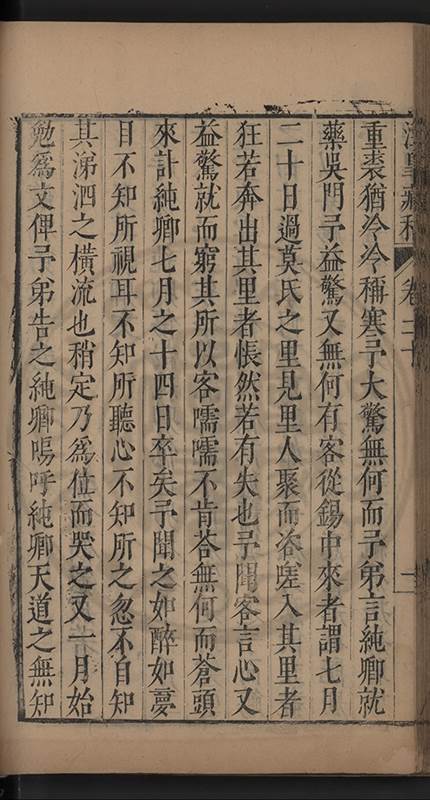 卷二十
重裘猶冷冷稱寒予大驚無何而予弟言純卿就
藥吳門予益驚又無何有客從錫中來者謂七月
二十日過莫氏之里見里人聚而咨嗟入其里者
狂若奔出其里者悵然若有失也予聞客言心又
益驚就而窮其所以客嚅嚅不肯荅無何而蒼頭
來計純卿七月之十四日卒矣予聞之如醉如夢
目不知所視耳不知所聽心不知所之忽不自知
其涕泗之橫流也稍定乃爲位而哭之又一月始
勉爲文俾予弟告之純卿嗚呼純卿天道之無知